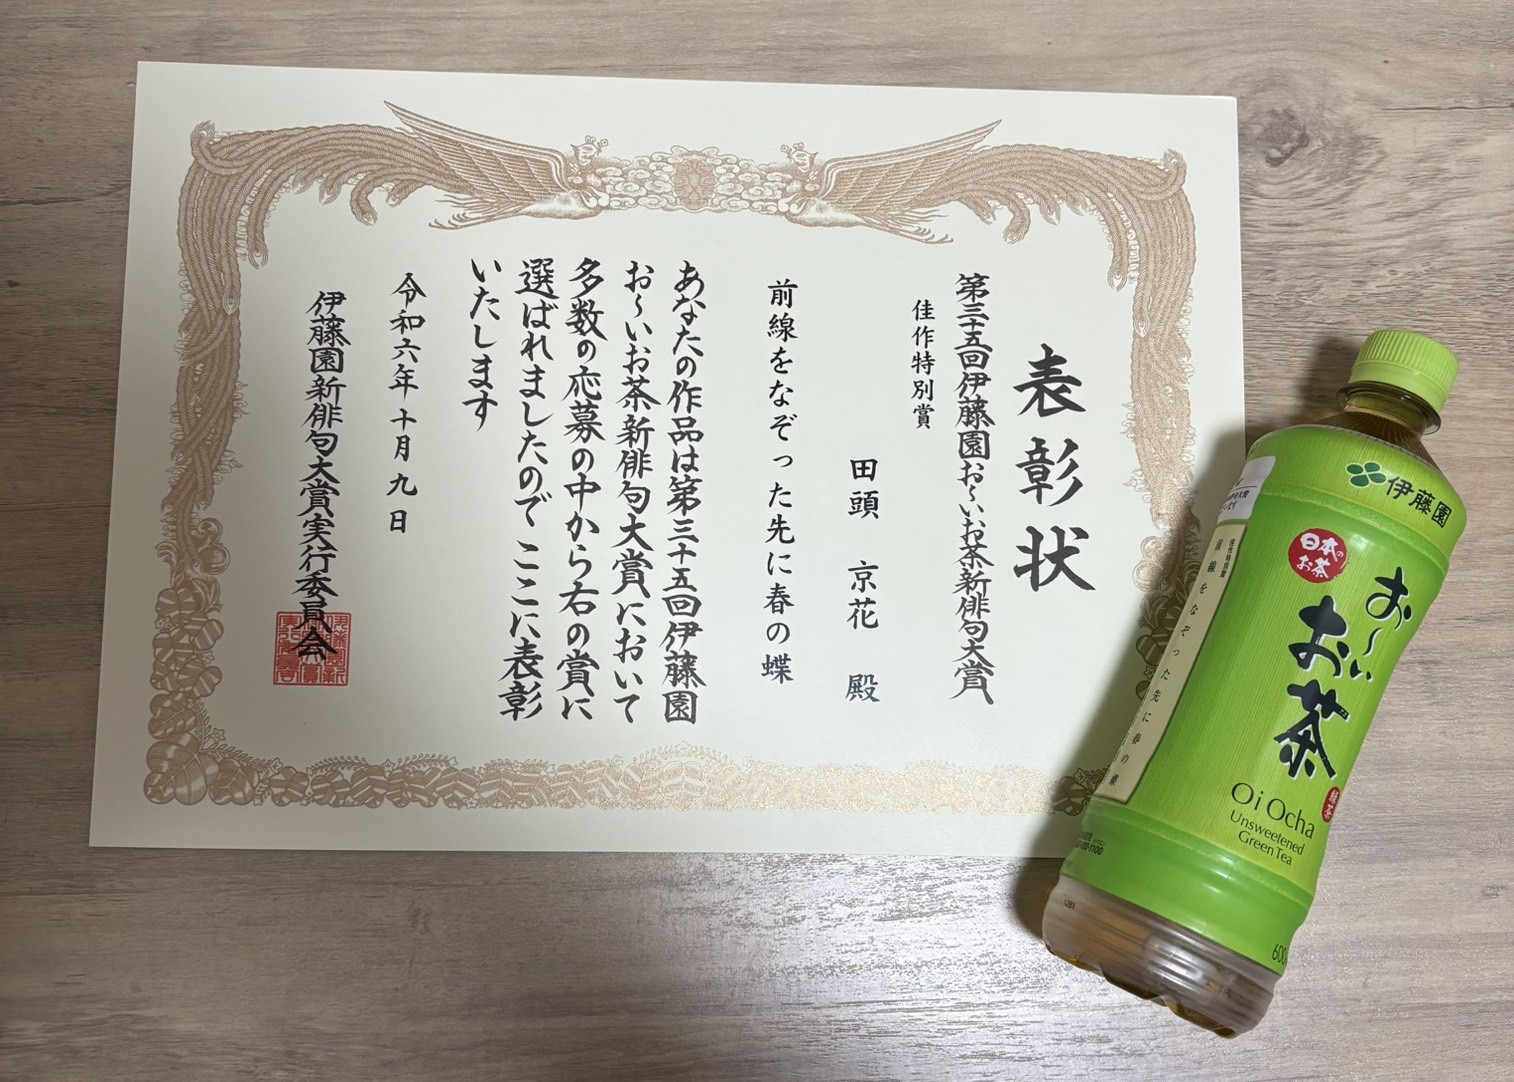 表彰状
第三十五回伊藤園お〜いお茶新俳句大賞
佳作特別賞
田頭 京花 殿
前線をなぞった先に春の蝶
あなたの作品は第三十五回伊藤園
お〜いお茶新俳句大賞において
多数の応募の中から右の賞に
選ばれましたので ここに表彰
いたします
令和六年十月九日
伊藤園新俳句大賞実行委員会
伊藤園
日本の
お茶
お〜い
お茶
緑茶
Oi Ocha
Unsweetened
Green Tea
佳作特別賞
前線をなぞった先に春の蝶
600